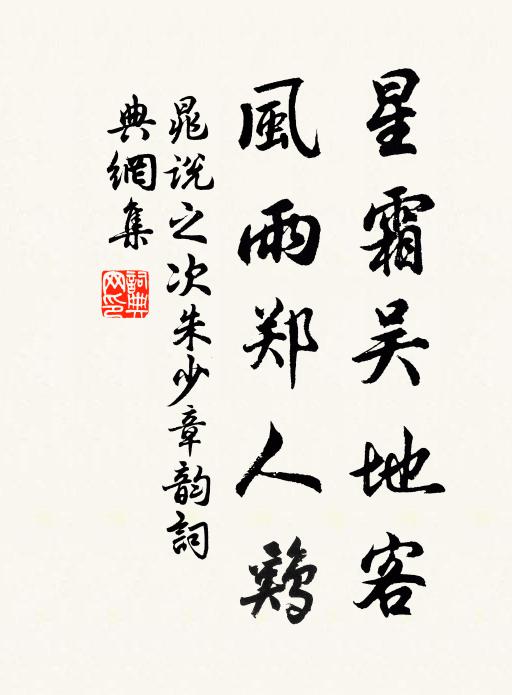 星霜吴地客
風雨郑人鷄
晁说之次朱少章韵詞
典網集
詞典
网印